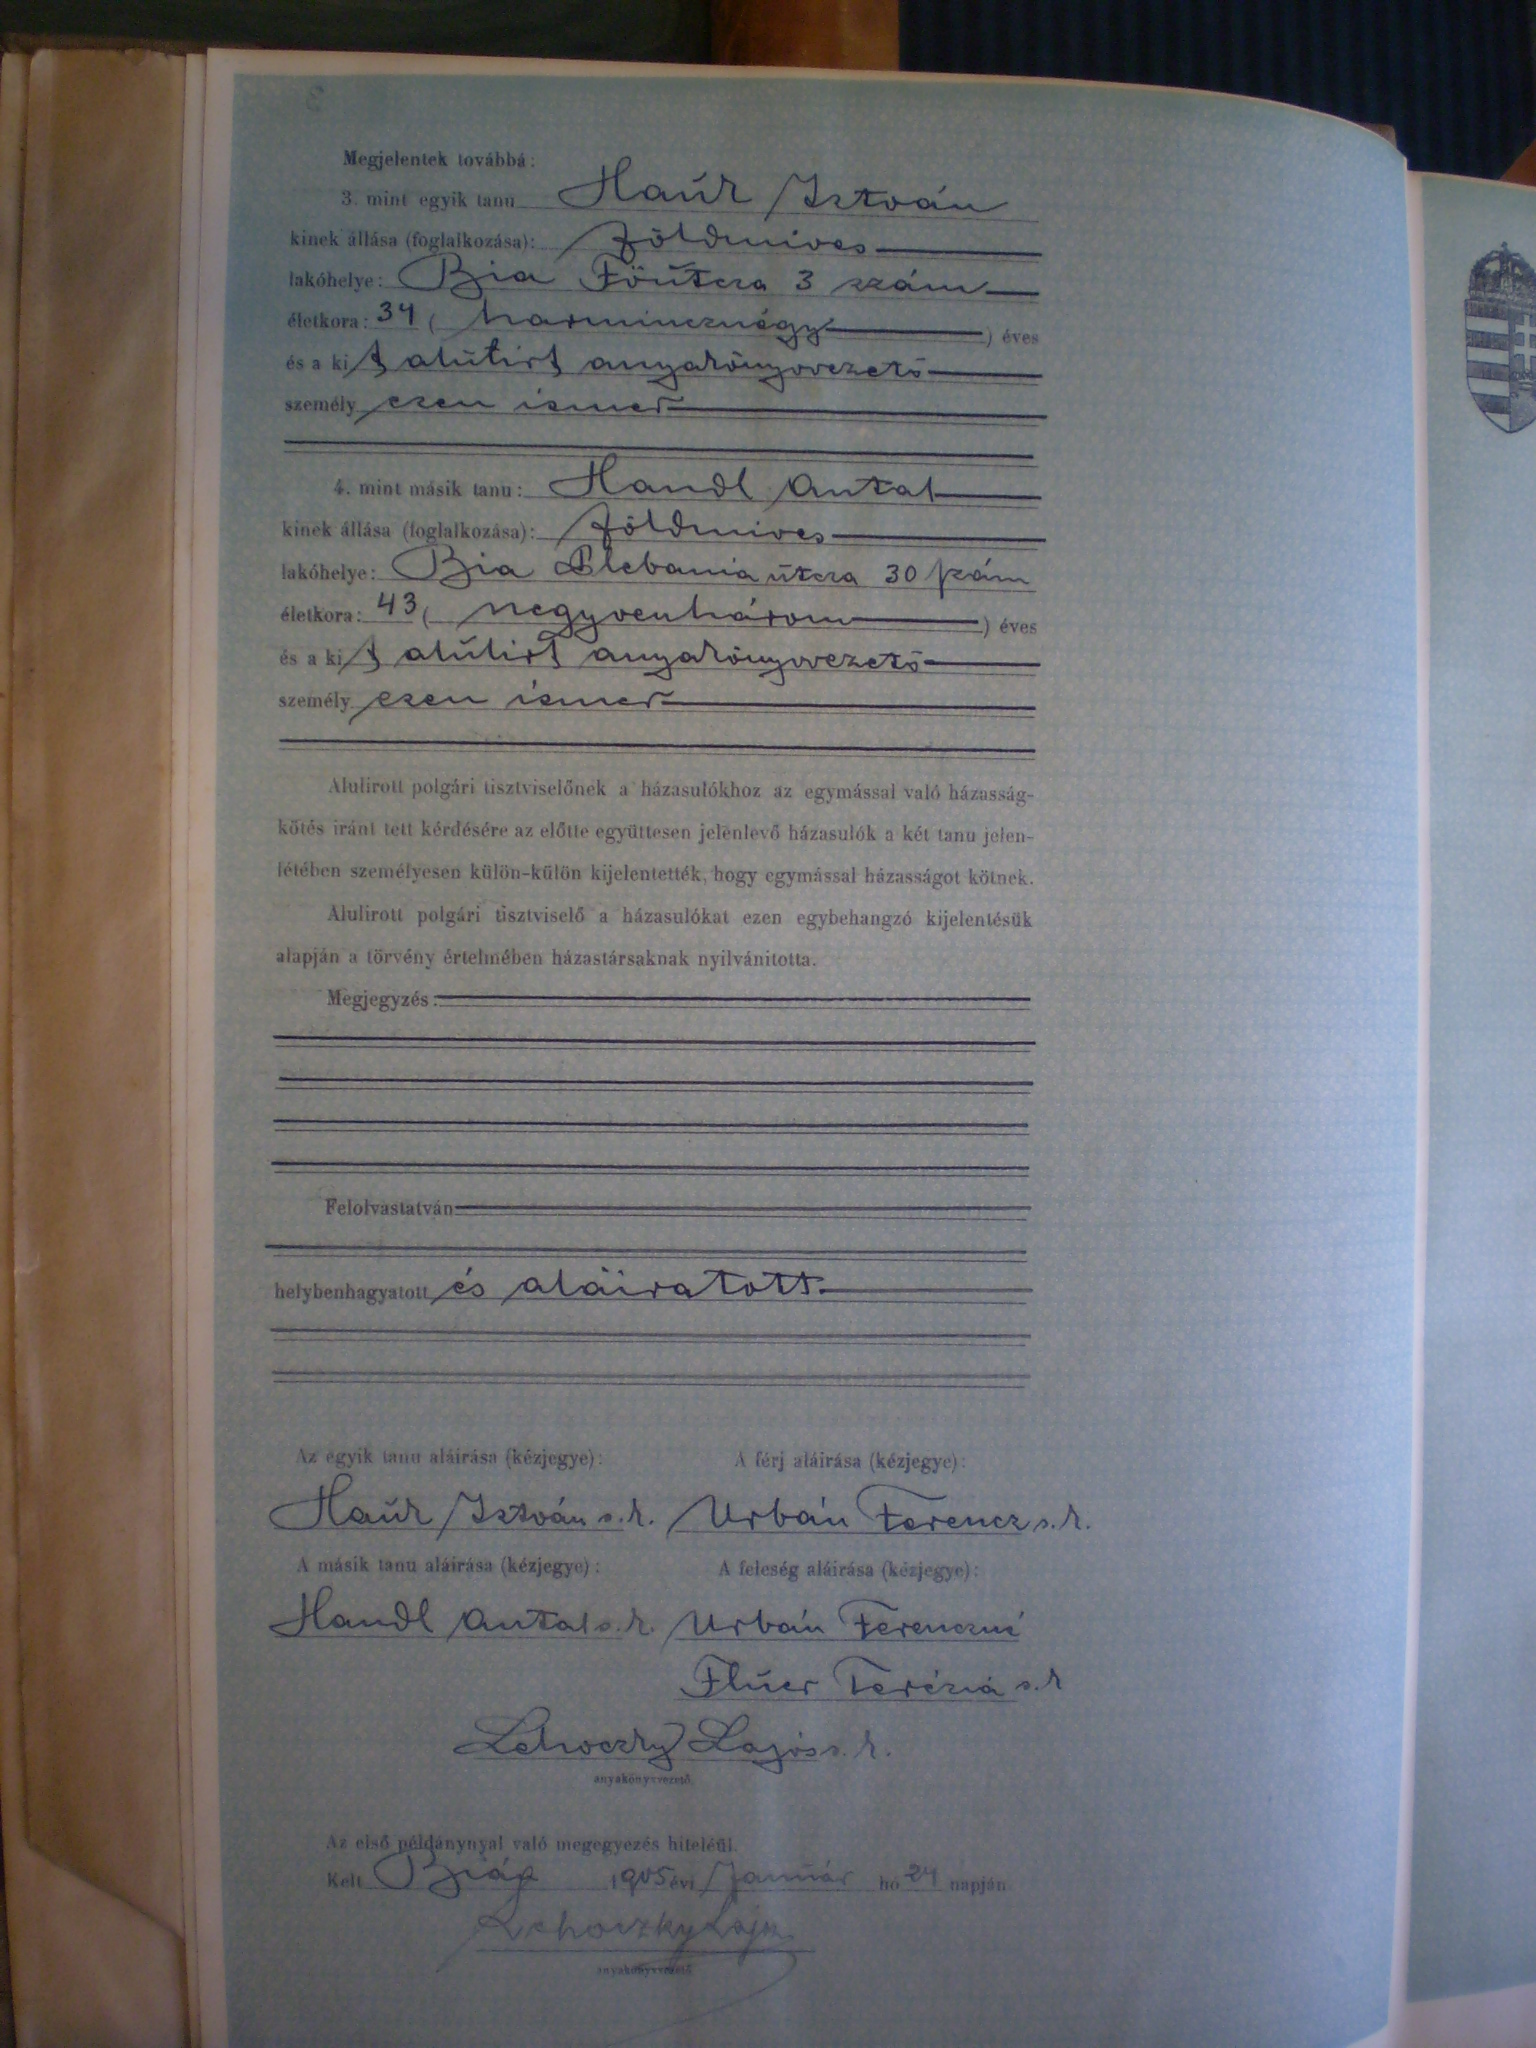 Megjelentek továbbá:
3. mint egyik tanu Haúk István
kinek állása (foglalkozása): földmives
lakóhelye: Bia Főútcza 3 szám
életkora: 34 ( harmincznégy ) éves
és a ki t alúlirt anyakönyvvezető
személyesen ismer
4. mint másik tanu: Handl Antal
kinek állása (foglalkozása): földmives
lakóhelye: Bia Plebania útcza 30 szám
életkora: 43 ( negyvenhárom ) éves
és a ki t alúlirt anyakönyvvezető
személyesen ismer
Alulirott polgári tisztviselőnek a házasulókhoz az egymással való házasság-
kötés iránt tett kérdésére az előtte együttesen jelenlevő házasulók a két tanu jelen-
létében személyesen külön-külön kijelentették, hogy egymással házasságot kötnek.
Alulirott polgári tisztviselő a házasulókat ezen egybehangzó kijelentésük
alapján a törvény értelmében házastársaknak nyilvánitotta.
Megjegyzés:
Felolvastatván
helybenhagyatott és aláiratott.
Az egyik tanu aláirása (kézjegye): A férj aláirása (kézjegye):
Haúk István s.k. Urbán Ferencz s.k.
A másik tanu aláirása (kézjegye): A feleség aláirása (kézjegye):
Handl Antal s.k. Urbán Ferenczné
Flúer Terézia s.k
Lehoczky Lajos s.k.
anyakönyvvezető
Az első példánynyal való megegyezés hiteléül.
Kelt Bián 1905 évi Január hó 24 napján
Lehoczky Lajos
anyakönyvvezető